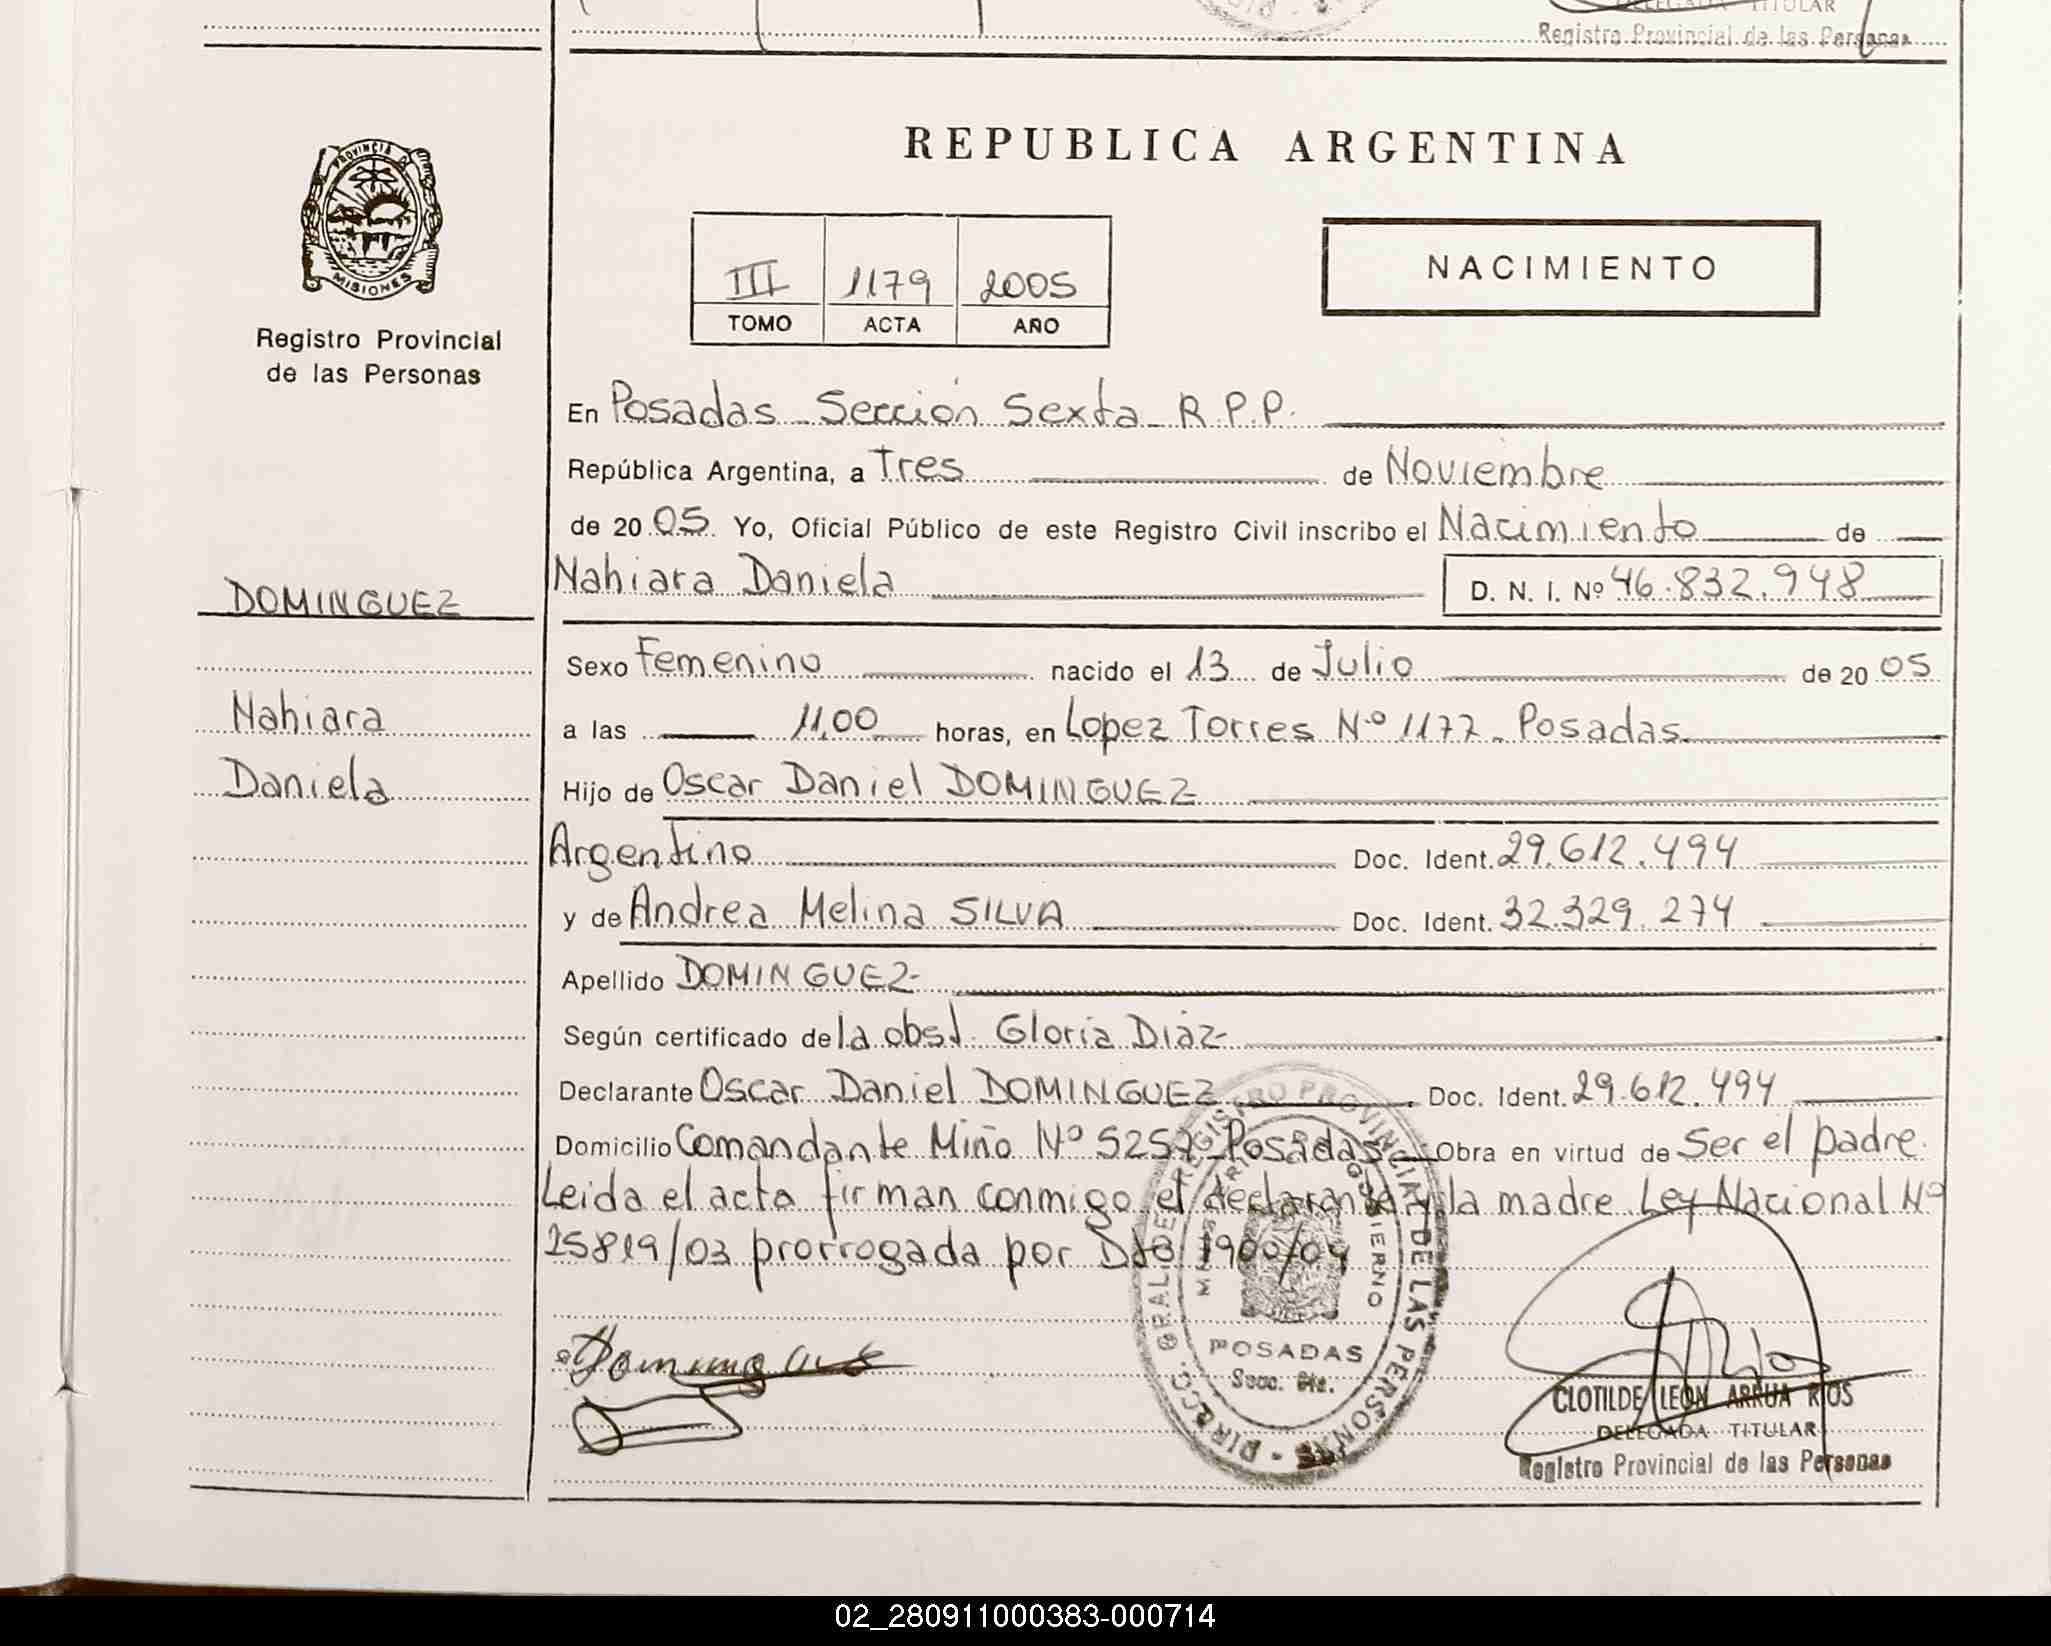 TITULAR
Registro Provincial de las Personas
PROVINCIA D
MISIONES
Registro Provincial
de las Personas
REPUBLICA ARGENTINA
III 1179 2005
TOMO ACTA AÑO
NACIMIENTO
En Posadas Sección Sexta R.P.P.
República Argentina, a Tres de Noviembre
de 2005 Yo, Oficial Público de este Registro Civil inscribo el Nacimiento de
Nahiara Daniela D. N. I. Nº 46.832.948
DOMINGUEZ
Nahiara
Daniela
Sexo Femenino nacido el 13 de Julio de 2005
a las 11,00 horas, en Lopez Torres Nº 1177 - Posadas
Hijo de Oscar Daniel DOMINGUEZ
Argentino Doc. Ident. 29.612.494
y de Andrea Melina SILVA Doc. Ident. 32.329.274
Apellido DOMINGUEZ
Según certificado de la obst. Gloria Diaz
Declarante Oscar Daniel DOMINGUEZ Doc. Ident. 29.612.494
Domicilio Comandante Miño Nº 5257 Posadas Obra en virtud de Ser el padre.
Leida el acta firman conmigo el declarante y la madre Ley Nacional Nº
25819/03 prorrogada por Dto 1900/04
Dominguez
DIRECC. GRAL DE REGISTRO PROVINCIAL DE LAS PERSONAS
GOBIERNO
POSADAS
Secc. 6ta.
CLOTILDE LEON ARRUA RIOS
DELEGADA TITULAR
Registro Provincial de las Personas
02_280911000383-000714